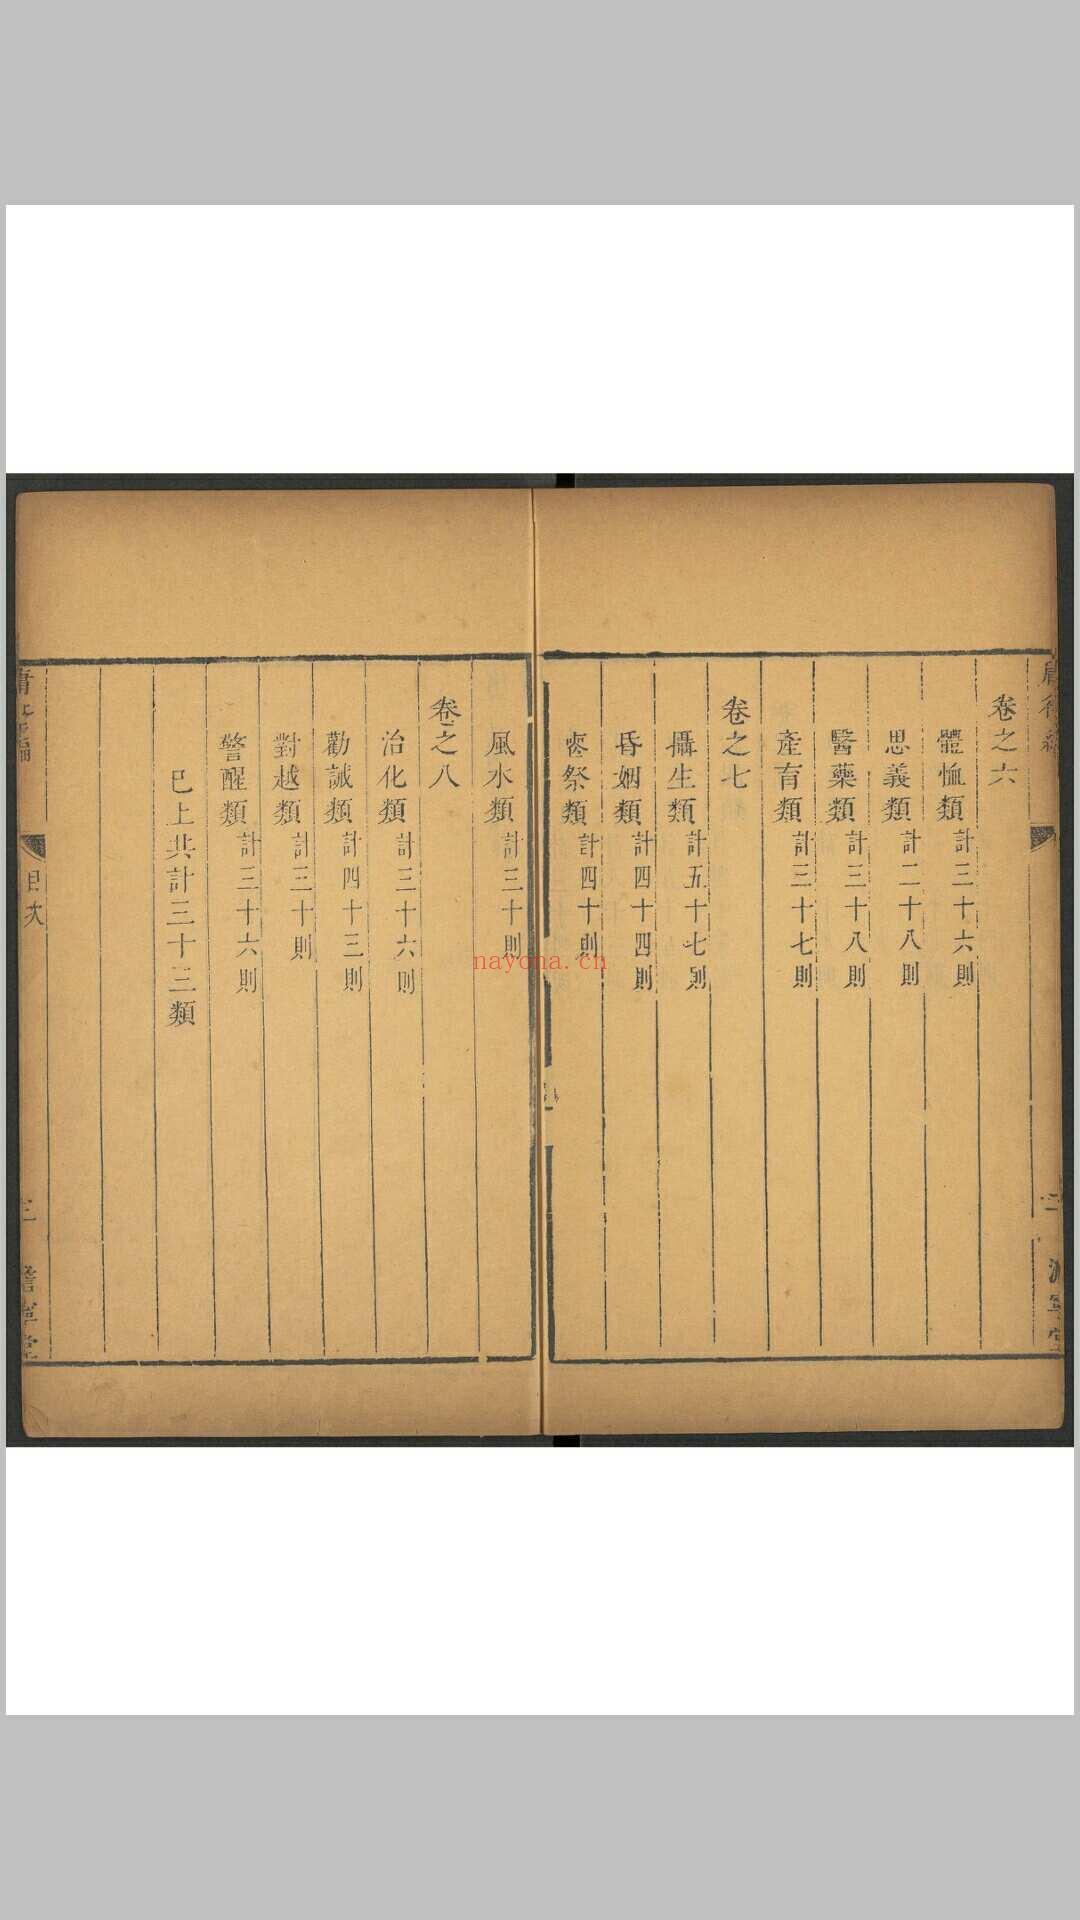 卷之六
體恤類計三十六則
思義類計二十八則
醫藥類計三十八則
產育類計三十七則
卷之七
攝生類計五十七則
昏姻類計四十四則
喪祭類計四十則
風水類計三十則
卷之八
治化類計三十六則
勸誡類計四十三則
對越類計三十則
警醒類計三十六則
巳上共計三十三類
目次
nayona.cn